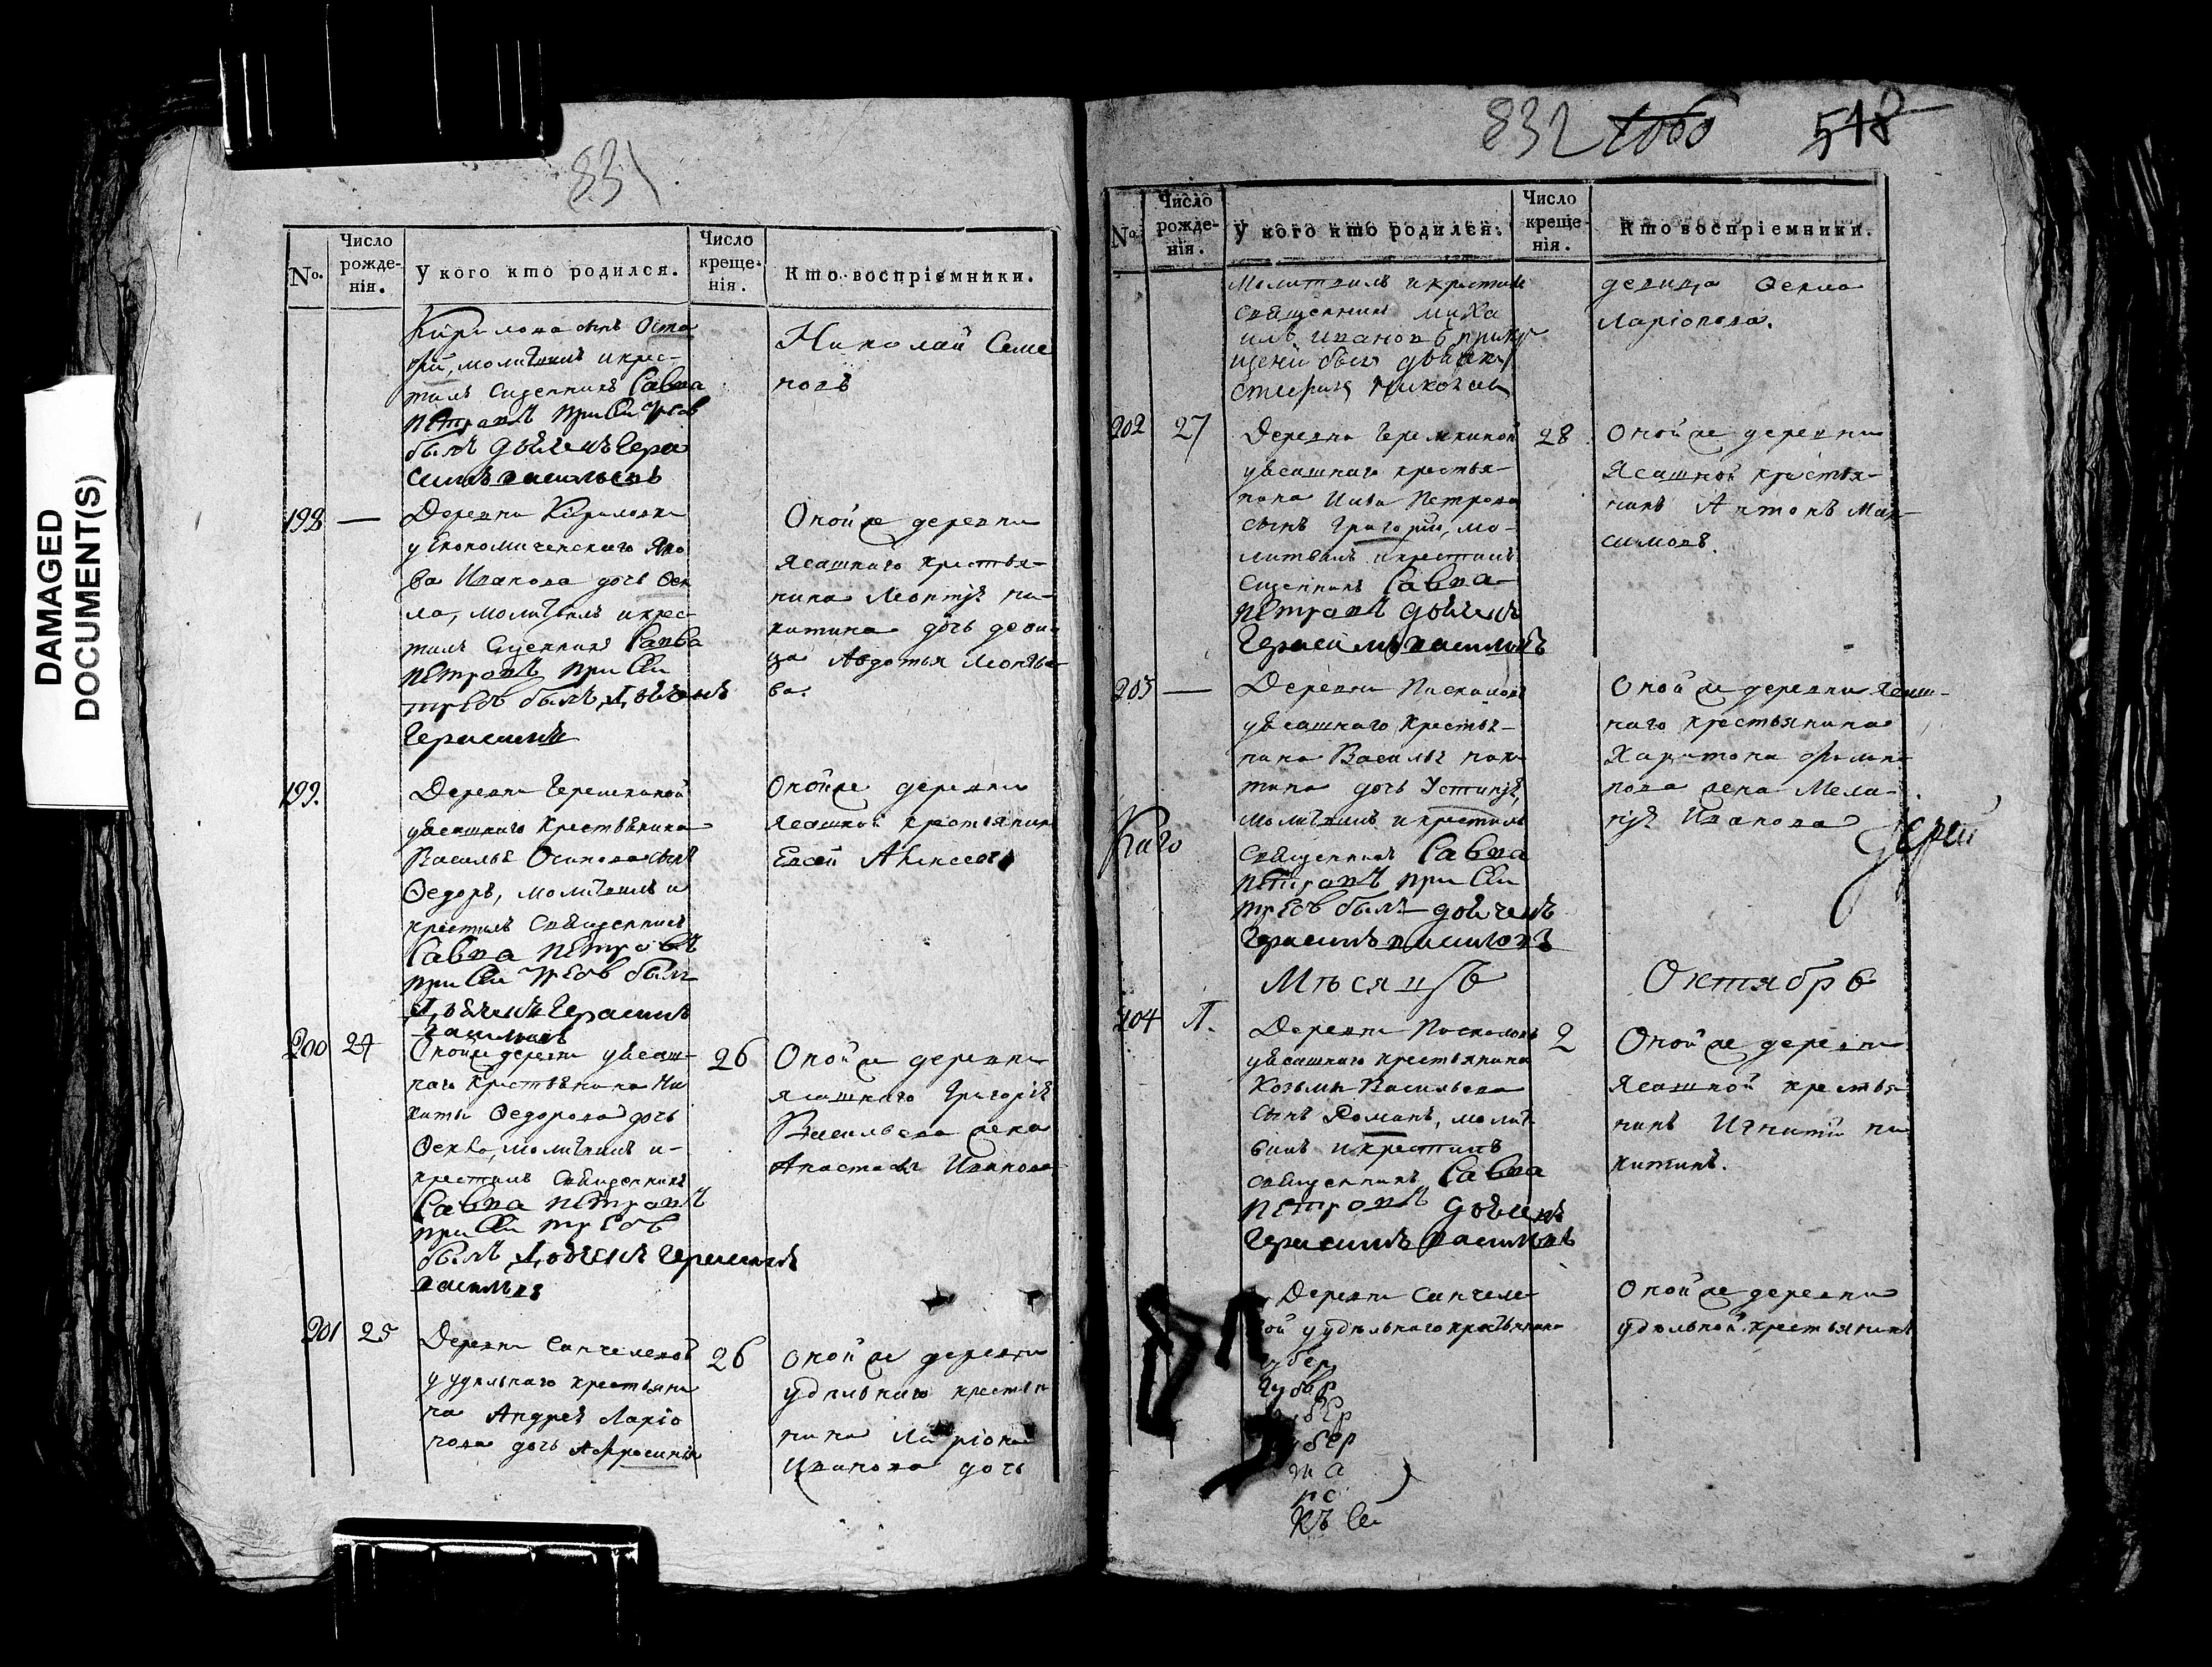 DAMAGED
DOCUMENT(S)
831
№.
Число рожде- нія.
У кого кто родился.
Число креще- нія.
Кто воспріемники.
Кирилова сынъ
молитвилъ и крес-
тилъ Сщенникъ Савва
Петровъ при сей требѣ
былъ дьячекъ Гера
симъ васильевъ
Николай Семе
новъ
198 —
Деревни Кириловки
Яко
ва Иванова дочь Фек
ла, молитвилъ и крес-
тилъ Сщенникъ Савва
Петровъ при сей
требѣ былъ дьячекъ
Герасимъ
Оной же деревни
ясашнаго крестья-
нина Леонтія ни-
китина дочь деви-
ца Авдотья Леонтье-
ва.
199.
Деревни Черемкиной
уясашнаго крестьянина
Василья Осипова сынъ
Ѳедоръ, молитвилъ и
крестилъ Священникъ
Савва Петровъ
при сей требѣ былъ
дьячекъ Герасимъ
васильевъ
Оной же деревни
ясашной крестьянинъ
Евсей Алексеевъ
200 24
Оной же деревни уясаш-
наго крестьянина Ни
киты Ѳедорова дочь
Ѳекла, молитвилъ и-
крестилъ Священникъ
Савва Петровъ
при сей требѣ
былъ дьячекъ Герасимъ
васильевъ
26
Оной же деревни
ясашнаго Григорія
Васильева жена
Анастасія Иванова
201 25
Деревни Санчелеевой
у удѣльнаго крестьяни
на Андрея Ларіо
нова дочь Афросинія
26
Оной же деревни
удѣльнаго крестья
нина Ларіона
Иванова дочь
832 518
№.
Число рожде- нія.
У кого кто родился.
Число креще- нія.
Кто воспріемники.
Молитвилъ и крестилъ
Священникъ Миха
илъ Ивановъ
девица Ѳекла
Ларіонова.
202 27
Деревни Черемкиной
уясашнаго крестья-
нина Петрова
сынъ Григорій, мо-
литвилъ и крестилъ
Сщенникъ Савва
Петровъ дьячекъ
Герасимъ васильевъ
28
Оной же деревни
Ясашной крестья-
нинъ Антонъ Мак-
симовъ.
203 —
Деревни
уясашнаго крестья-
нина Василья ники
тина дочь Устинія,
молитвилъ и крестилъ
Священникъ Савва
Петровъ при сей
требѣ былъ дьячекъ
Герасимъ васильевъ
Оной же деревни ясаш-
наго крестьянина
Харитона Филип-
пова жена Мела-
нія Иванова
Іерей
Мѣсяцъ Октябрь
204 1.
Деревни
уясашнаго крестьянина
Козьмы Васильева
сынъ Романъ, молит-
вилъ и крестилъ
священникъ Савва
Петровъ дьячекъ
Герасимъ васильевъ
2
Оной же деревни
Ясашной крестья
нинъ Игнатій ни
китинъ.
Деревни Санчеле
вой у удѣльнаго крестьянина
Оной же деревни
удѣльной крестьянинъ
губер
губер
губЕр
губер